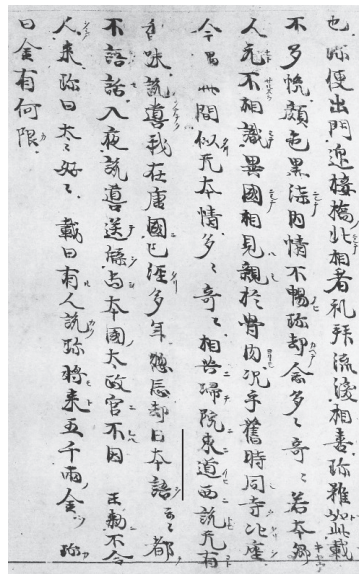 也珎便出門迎接橋北相看礼拜流淚相喜珎雖如此載
不多悦顔色黒漆内情不暢珎却念多〻奇〻若本郷
人元不相識異國相見親於骨肉况乎舊時同寺比座
今遇此間似无本情多〻奇〻相共歸院東道西説无有
香味説噵我在唐國已經多年惣忘却日本語云〻都
不語話入夜説噵送牒与本國太政官不因 王勅不令
人來珎曰太〻好〻 載曰有人説珎將來五千兩金 珎
曰金有何限